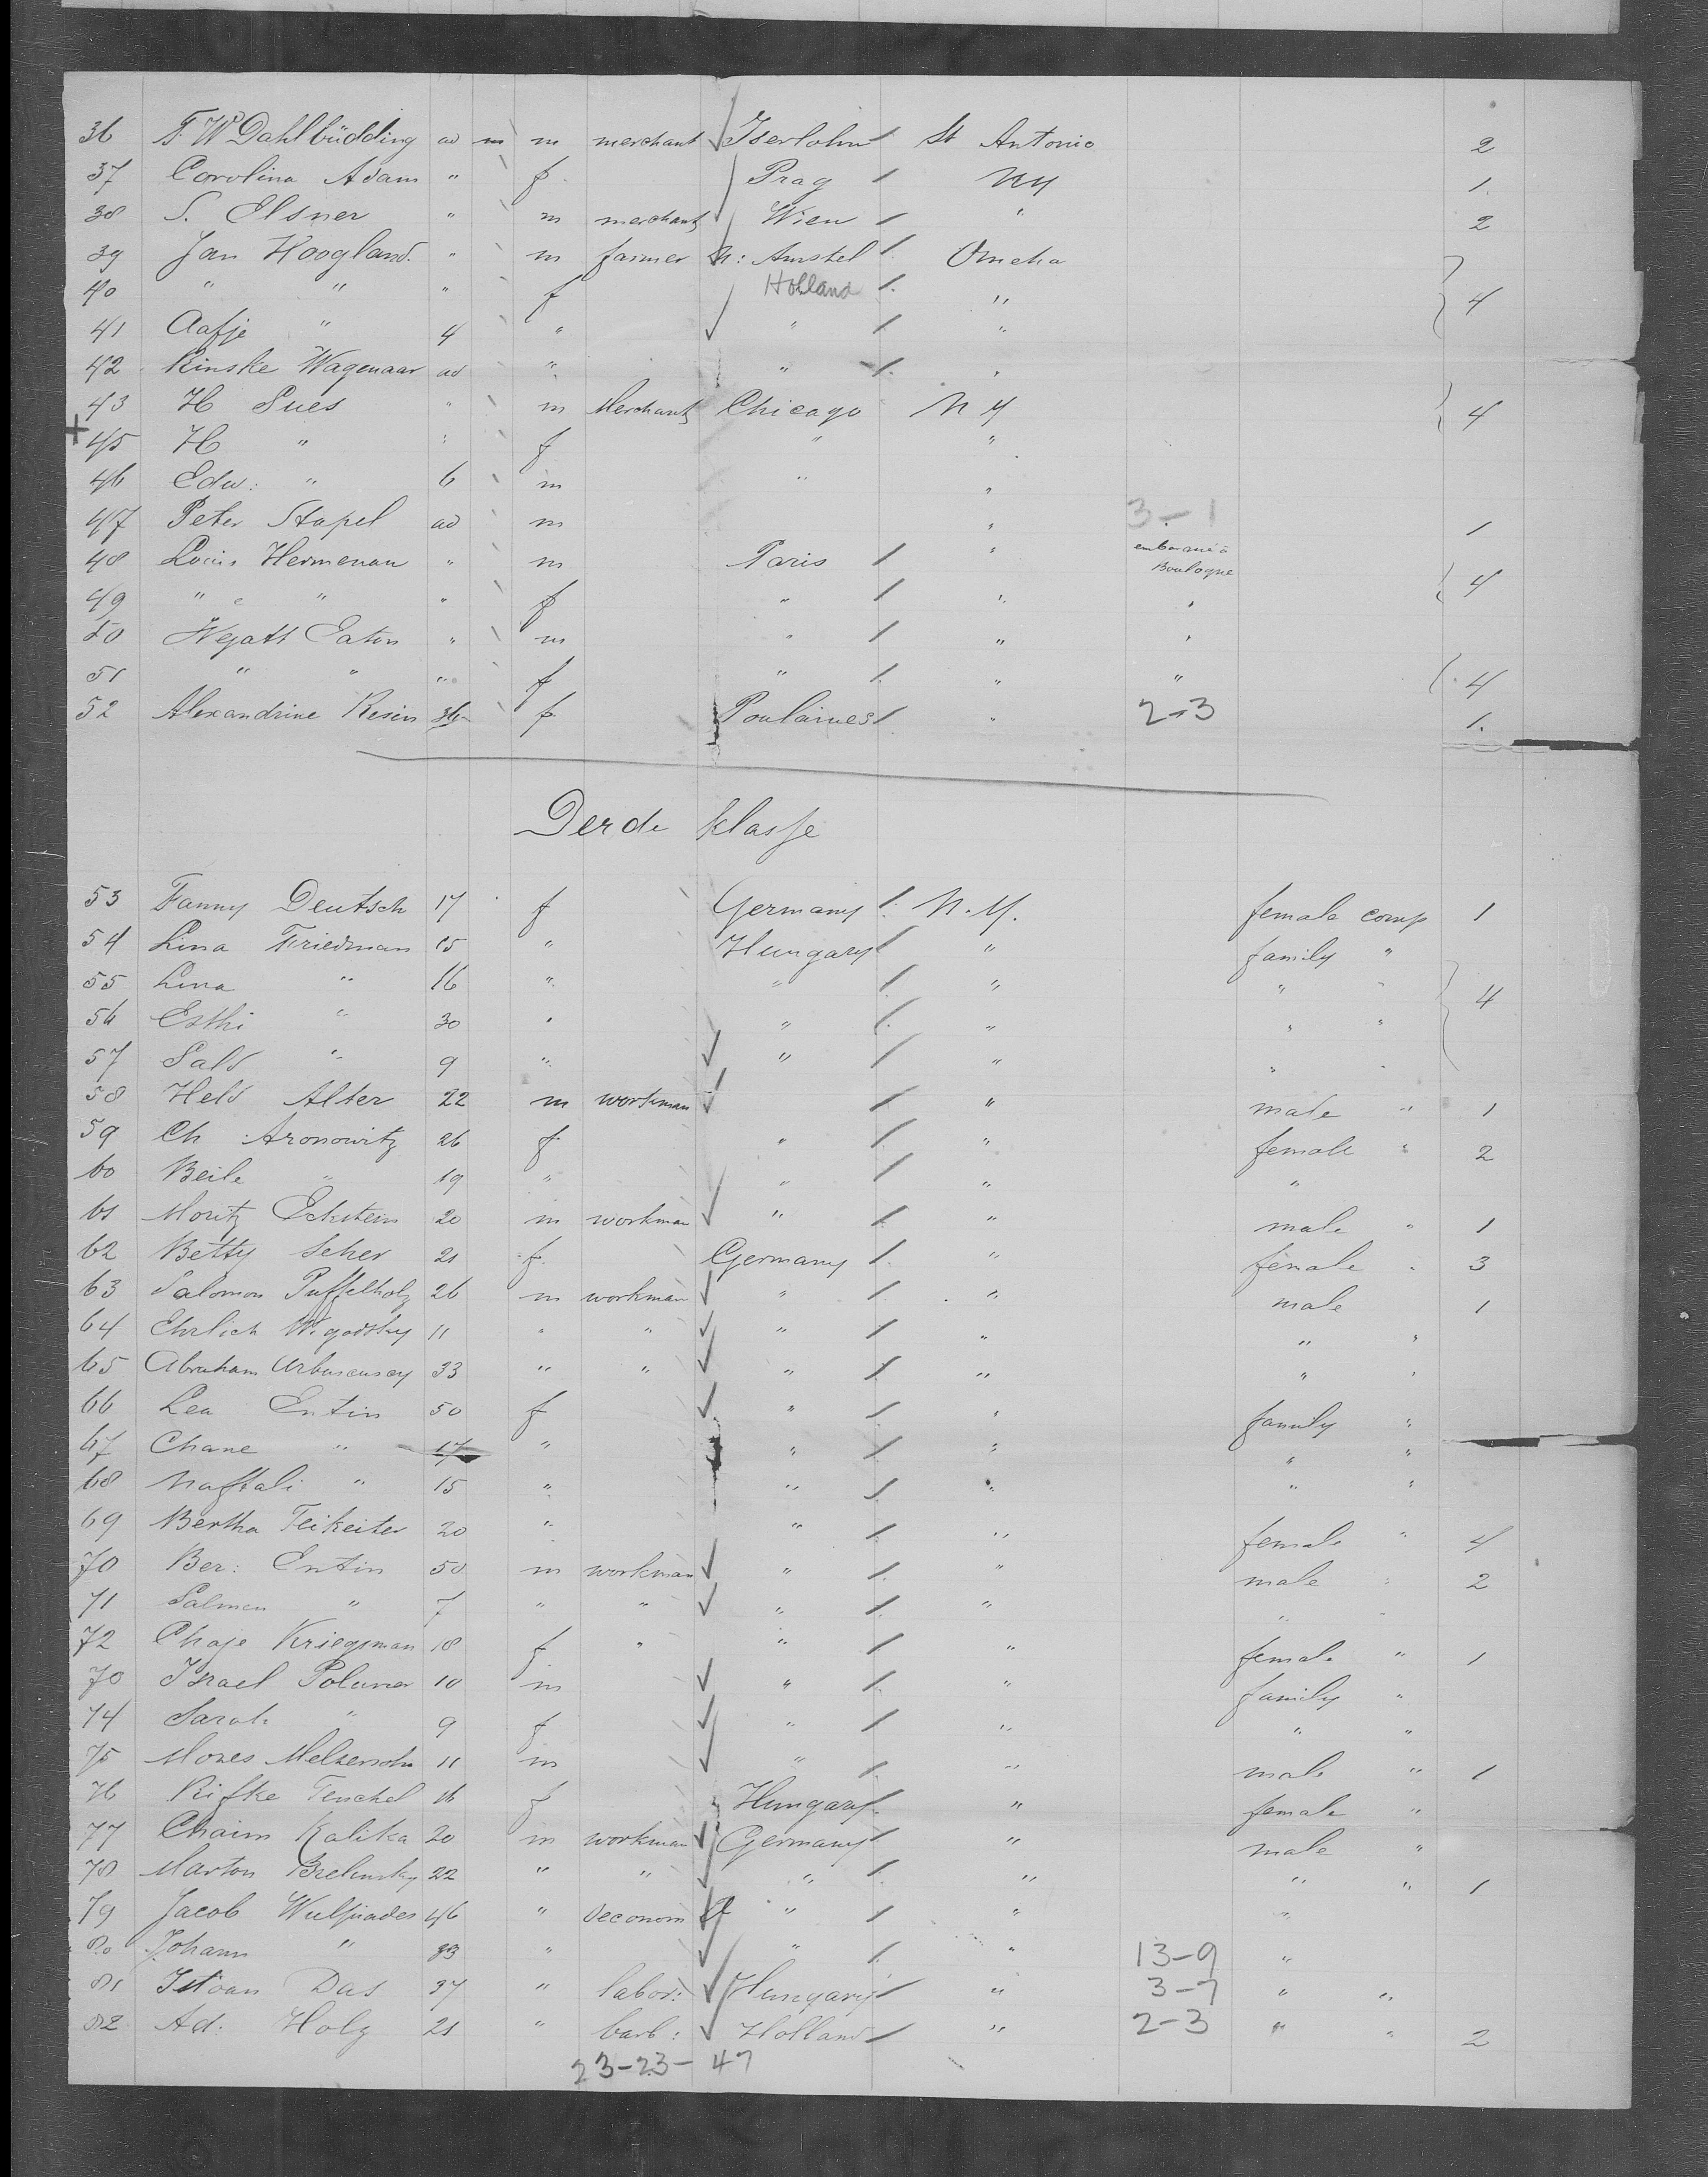 36 F. W Dahlbüdding ad m m merchant Iserlohn St Antonio 2
37 Carolina Adam " f Prag NY 1.
38 S. Elsner " m merchant Wien " 2
39 Jan Hoogland. " m farmer N: Amstel Omeha
40 " " " f Holland " 4
41 Aafje " 4 " " "
42 Rinske Wagenaar ad " " "
43 H Sues " m Merchant Chicago N Y 4
+
45 H " " f " "
46 Edw: " 6 m " "
47 Peter Stapel ad m " 3-1 1
48 Louis Hermenau " m Paris " embarqué à Boulogne
49 " e " " f " " " 4
50 Wyatt Eaton " m " " "
51 " " " f " " " 4
52 Alexandrine Resin 36 f Poulaines " 2-3 1.
Derde klasse
53 Fanny Deutsch 17 f Germany N.Y. female comp 1
54 Lina Friedman 15 " Hungary " family "
55 Lina " 16 " " " " "
56 Esthi " 30 " " " " " 4
57 Sald " 9 " " " " "
58 Held Alter 22 m workman " male " 1
59 Ch Aronowitz 26 f " " female " 2
60 Beile " 19 " " " "
61 Moritz Eckstein 20 m workman " " male " 1
62 Betty Scher 21 f Germany " female " 3
63 Salomon Puffelholz 26 m workman " " male 1
64 Ehrlich Wigodsky 11 " " " " " "
65 Abraham 33 " " " " " "
66 Lea Entin 50 f " " family "
67 Chane " 17 " " " " "
68 Naftali " 15 " " " " "
69 Bertha Teikeiter 20 " " " female " 4
70 Ber: Entin 50 m workman " " male " 2
71 Salmen " 7 " " " " " "
72 Chaje Kriegsman 18 f " " " female " 1
70 Israel Poluner 10 m " " family "
74 Sarah " 9 f " " " "
75 Moses Melzersohn 11 m " " male " 1
76 Rifke Tenchel 16 f Hungary " female "
77 Chaim Kalika 20 m workman Germany " male "
78 Marton 22 " " " " " " 1
79 Jacob 46 " oeconom " " "
80 Johann " 33 " " " 13-9 "
81 Istvan Das 37 " labor: Hungary " 3-7 " "
82 Ad. Holz 21 " barb: Holland " 2-3 " " 2
23-23- 47